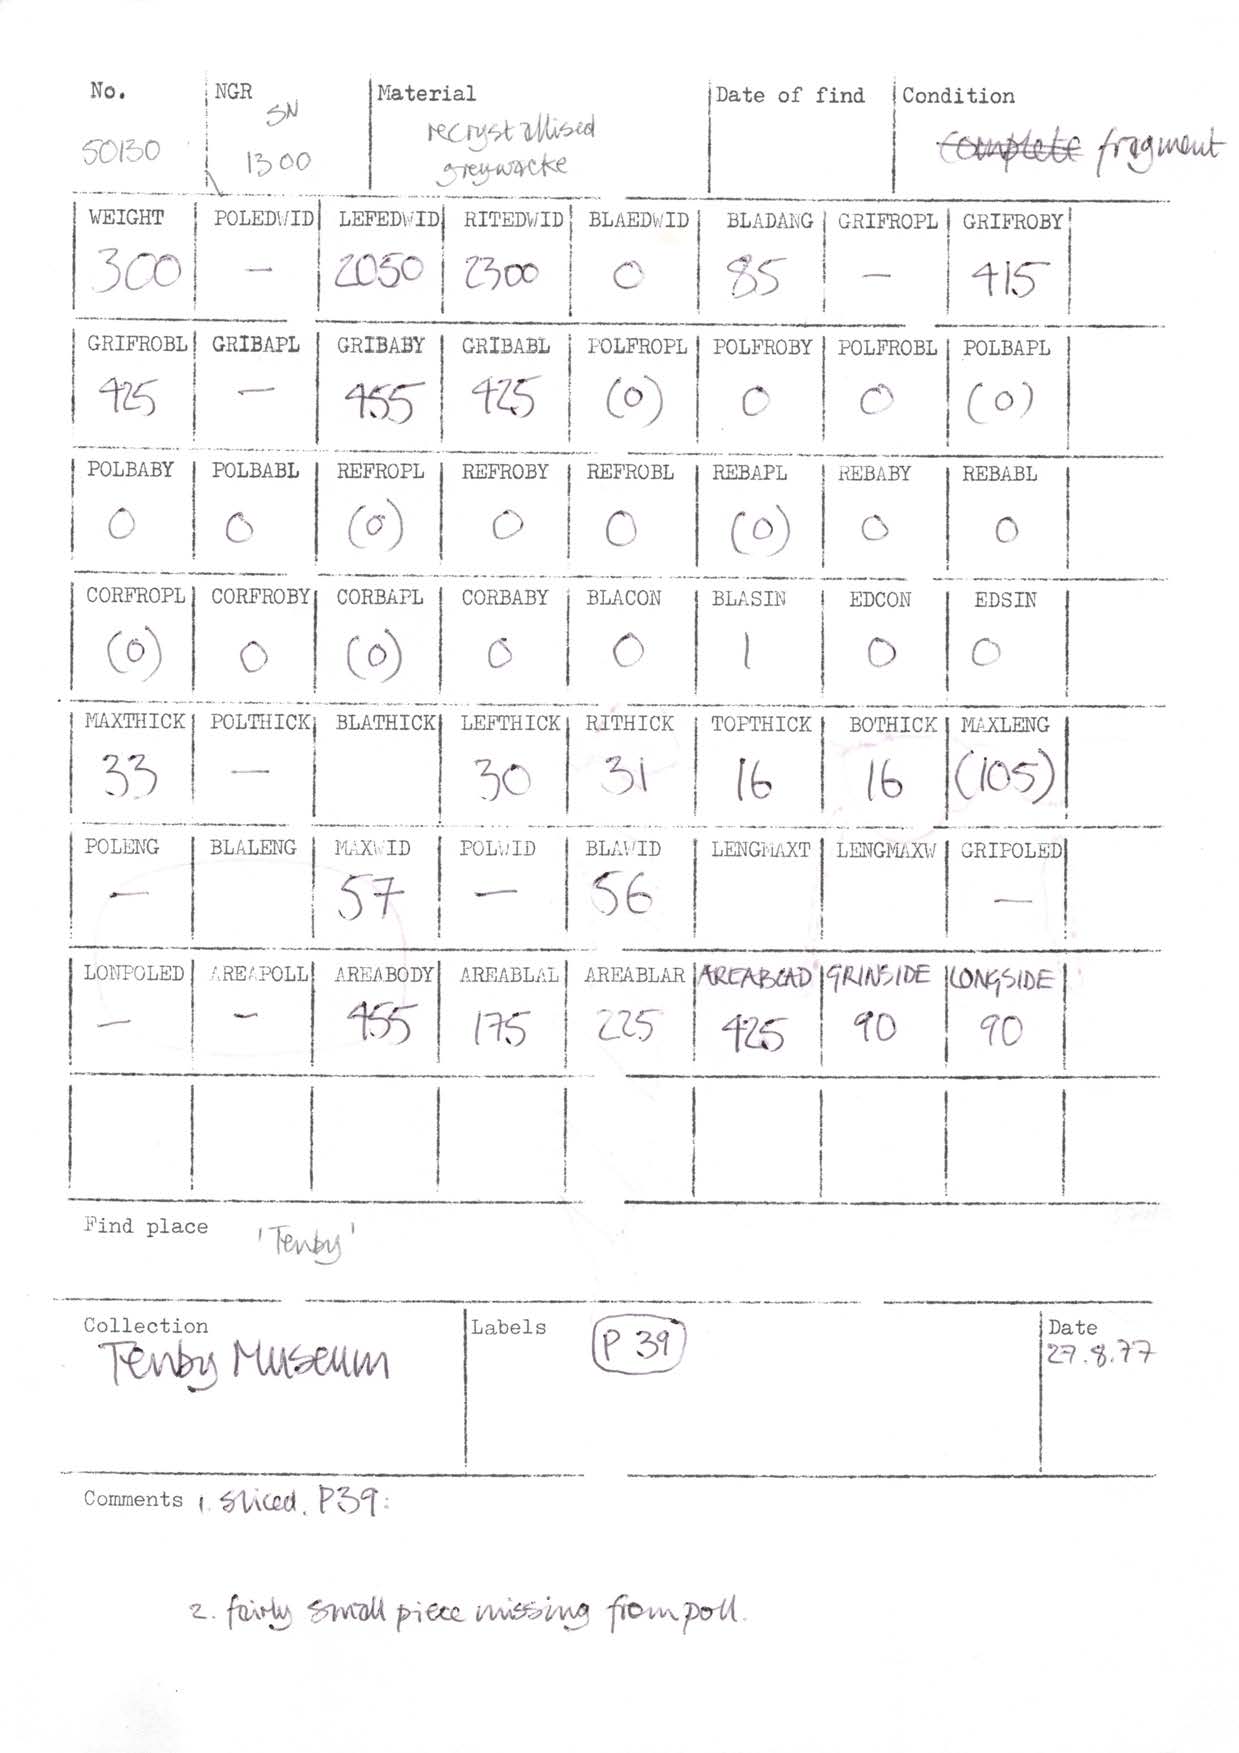 No. NGR Material Date of find Condition
50130 SN 1300 recrystallised greywacke complete fragment
WEIGHT POLEDWID LEFEDWID RITEDWID BLAEDWID BLADANG GRIFROPL GRIFROBY
300 — 2050 2300 0 85 — 415
GRIFROBL GRIBAPL GRIBABY GRIBABL POLFROPL POLFROBY POLFROBL POLBAPL
425 — 455 425 (0) 0 0 (0)
POLBABY POLBABL REFROPL REFROBY REFROBL REBAPL REBABY REBABL
0 0 (0) 0 0 (0) 0 0
CORFROPL CORFROBY CORBAPL CORBABY BLACON BLASIN EDCON EDSIN
(0) 0 (0) 0 0 1 0 0
MAXTHICK POLTHICK BLATHICK LEFTHICK RITHICK TOPTHICK BOTHICK MAXLENG
33 — 30 31 16 16 (105)
POLENG BLALENG MAXWID POLWID BLAWID LENGMAXT LENGMAXW GRIPOLED
— 57 — 56 —
LONPOLED AREAPOLL AREABODY AREABLAL AREABLAR AREABLAD GRINSIDE LONGSIDE
— — 455 175 225 425 90 90
Find place 'Tenby'
Collection Labels Date
Tenby Museum P 39 27.8.77
Comments 1. sliced. P39:
2. fairly small piece missing from poll.